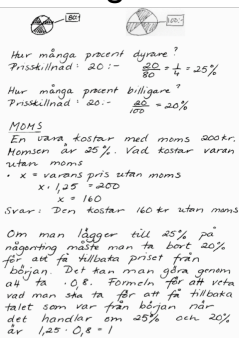 80:-
100:-
Hur många procent dyrare?
Prisskillnad: 20:- 20/80 = 1/4 = 25%
Hur många procent billigare?
Prisskillnad: 20:- 20/100 = 20%
MOMS
En vara kostar med moms 200 kr.
Momsen är 25%. Vad kostar varan
utan moms
• x = varans pris utan moms
x · 1,25 = 200
x = 160
Svar: Den kostar 160 kr utan moms
Om man lägger till 25% på
någonting måste man ta bort 20%
för att få tillbaka priset från
början. Det kan man göra genom
att ta · 0,8. Formeln för att veta
vad man ska ta för att få tillbaka
talet som var från början när
det handlar om 25% och 20%
är 1,25 · 0,8 = 1